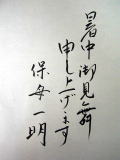 暑中御見舞
申し上げます
保母一明